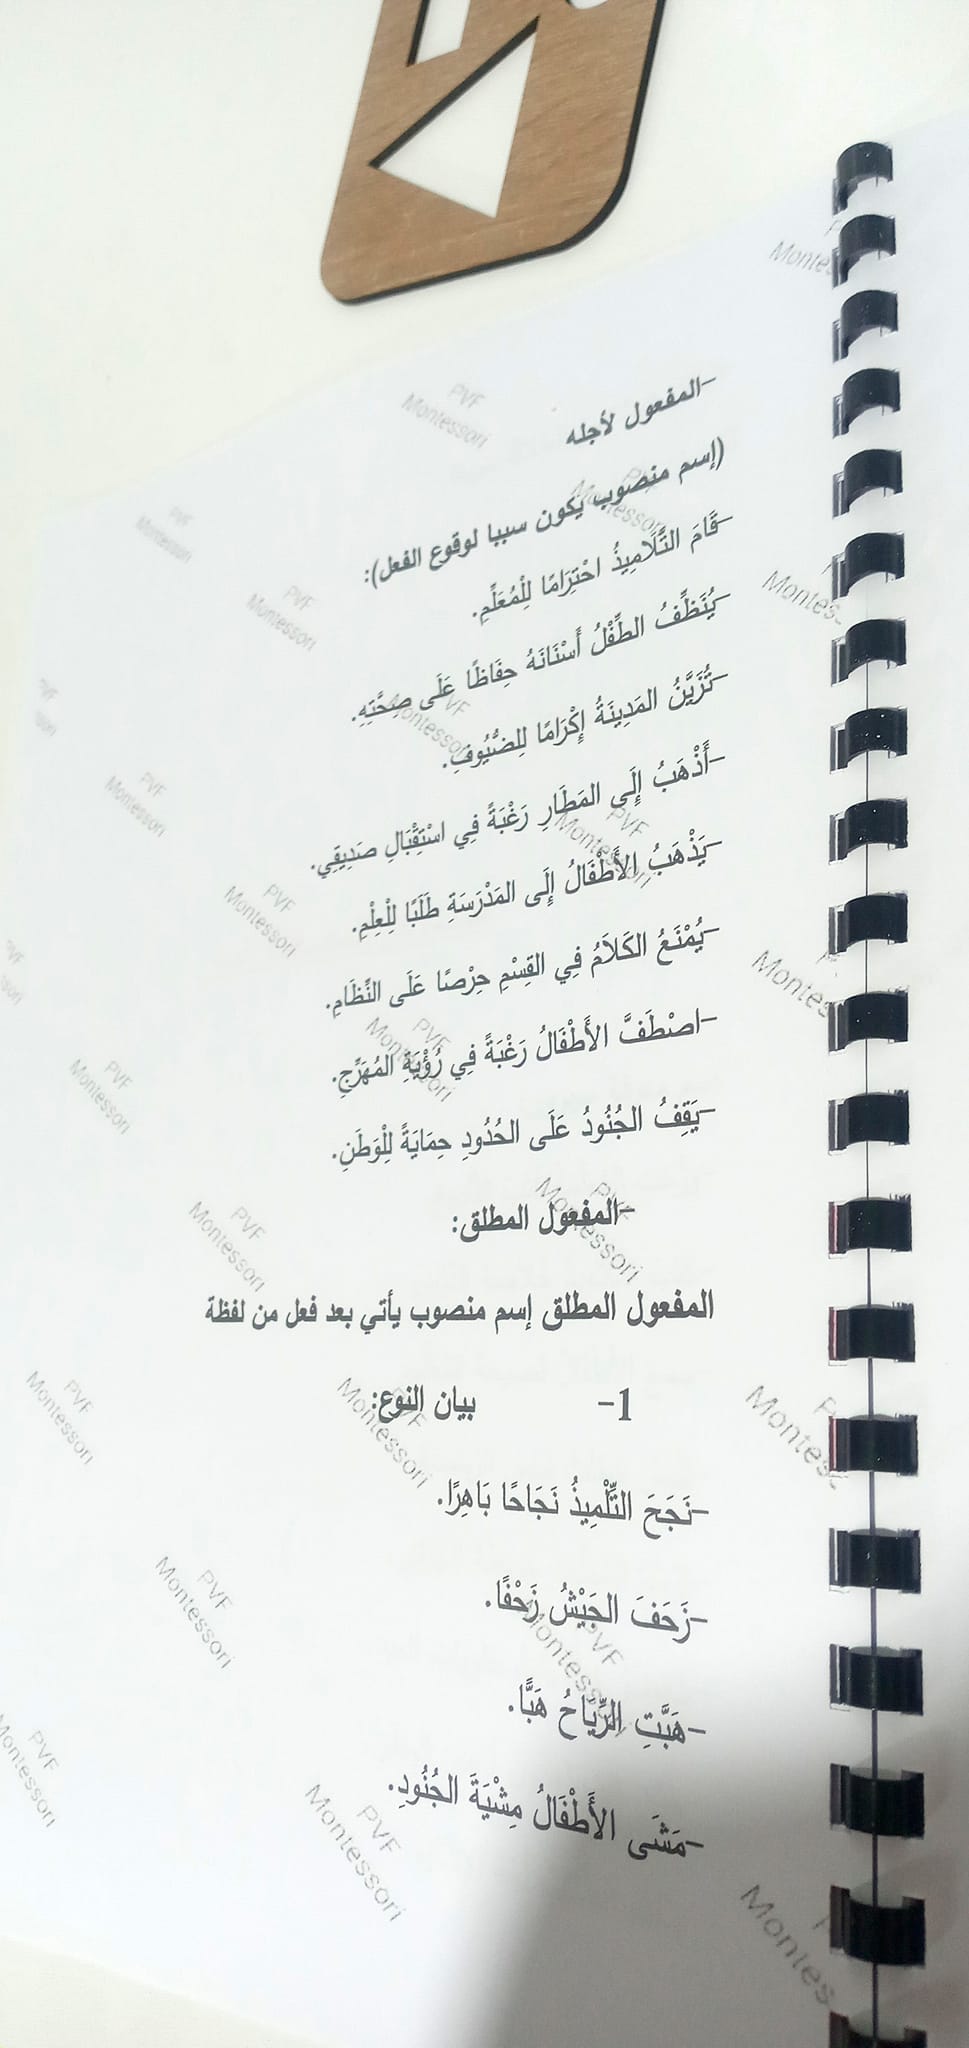 -المفعول لأجله
(إسم منصوب يكون سببا لوقوع الفعل):
-قَامَ التَّلَامِيذُ احْتِرَامًا لِلْمُعَلِّمِ.
-يُنَظِّفُ الطِّفْلُ أَسْنَانَهُ حِفَاظًا عَلَى صِحَّتِهِ.
-تُزَيَّنُ المَدِينَةُ إِكْرَامًا لِلضُّيُوفِ.
-أَذْهَبُ إِلَى المَطَارِ رَغْبَةً فِي اسْتِقْبَالِ صَدِيقِي.
-يَذْهَبُ الأَطْفَالُ إِلَى المَدْرَسَةِ طَلَبًا لِلْعِلْمِ.
-يُمْنَعُ الكَلَامُ فِي القِسْمِ حِرْصًا عَلَى النِّظَامِ.
-اصْطَفَّ الأَطْفَالُ رَغْبَةً فِي رُؤْيَةِ المُهَرِّجِ.
-يَقِفُ الجُنُودُ عَلَى الحُدُودِ حِمَايَةً لِلْوَطَنِ.
-المفعول المطلق:
المفعول المطلق إسم منصوب يأتي بعد فعل من لفظة
1- بيان النوع:
-نَجَحَ التِّلْمِيذُ نَجَاحًا بَاهِرًا.
-زَحَفَ الجَيْشُ زَحْفًا.
-هَبَّتِ الرِّيَاحُ هَبًّا.
-مَشَى الأَطْفَالُ مِشْيَةَ الجُنُودِ.
PVF
Montessori